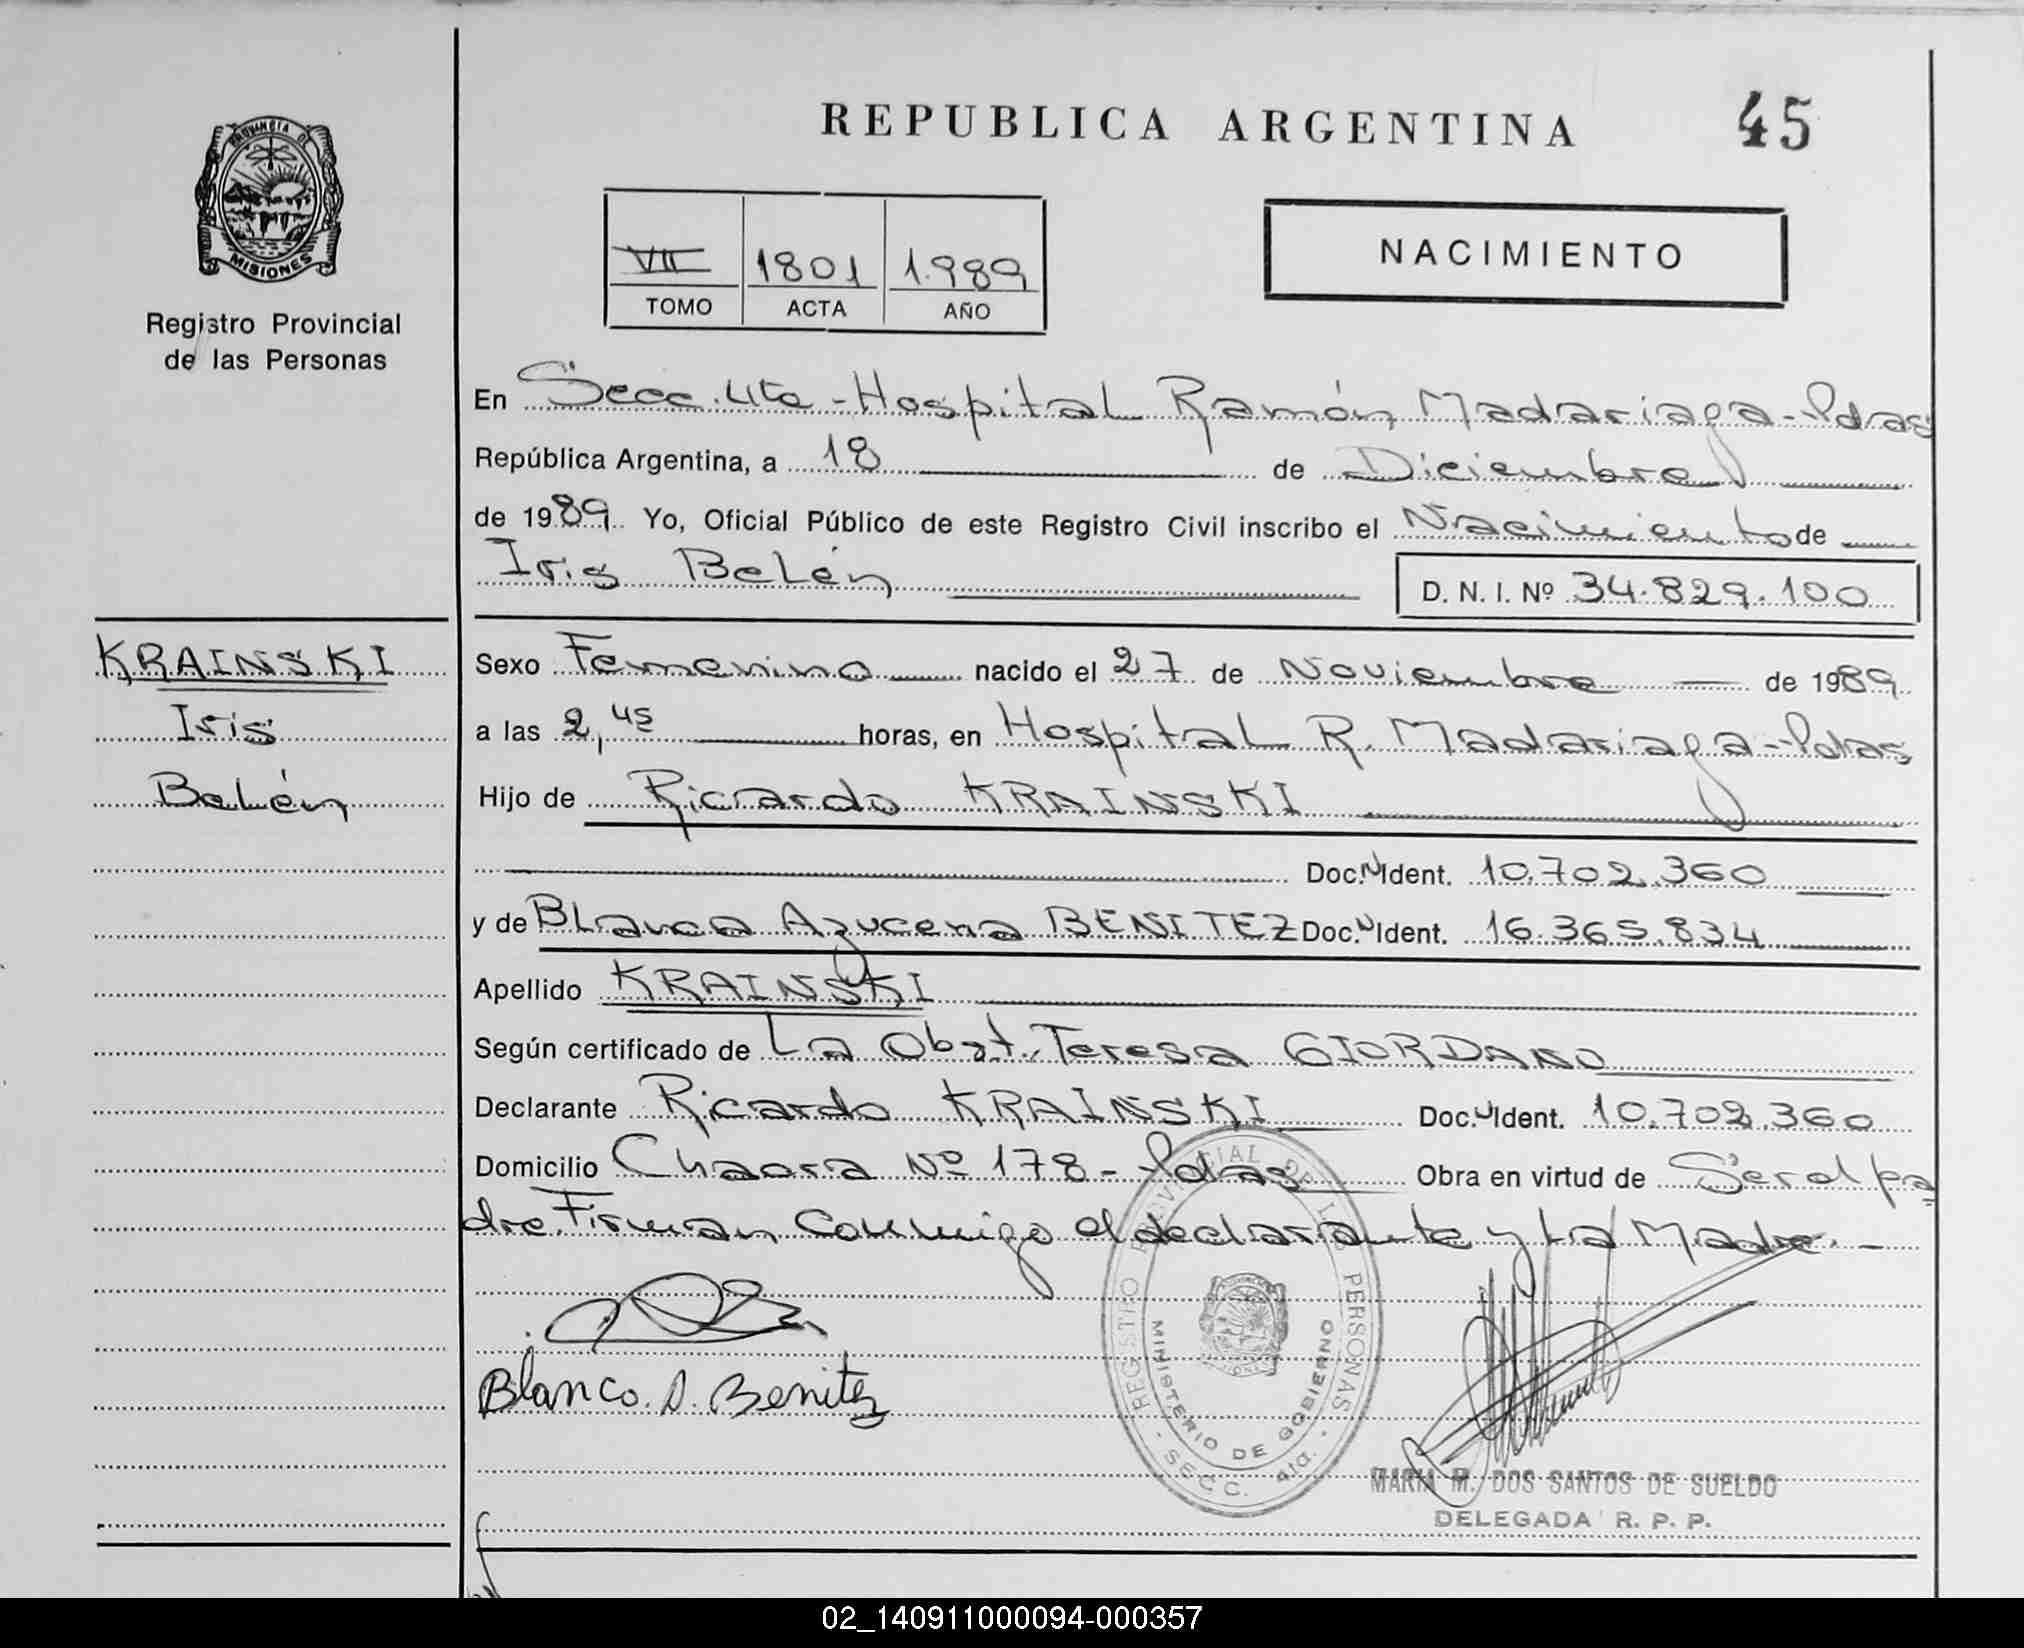 REPUBLICA ARGENTINA
45
PROVINCIA DE
MISIONES
Registro Provincial
de las Personas
VII 1801 1.989
TOMO ACTA AÑO
NACIMIENTO
En Secc. 4ta - Hospital Ramón Madariaga - Pdas
República Argentina, a 18 de Diciembre
de 1989. Yo, Oficial Público de este Registro Civil inscribo el Nacimiento de
Iris Belén D. N. I. Nº 34.829.100
KRAINSKI
Iris
Belén
Sexo Femenino nacido el 27 de Noviembre de 1989
a las 2,45 horas, en Hospital R. Madariaga - Pdas
Hijo de Ricardo KRAINSKI
Doc. N Ident. 10.702.360
y de Blanca Azucena BENITEZ Doc. N Ident. 16.365.834
Apellido KRAINSKI
Según certificado de La Obst. Teresa GIORDANO
Declarante Ricardo KRAINSKI Doc. N Ident. 10.702.360
Domicilio Chacra Nº 178 - Pdas Obra en virtud de Ser el pa
dre. Firman Conmigo el declarante y La Madre. -
Blanca. A. Benitez
REGISTRO PROVINCIAL DE LAS PERSONAS
MINISTERIO DE GOBIERNO
- SECC. 4ta. -
MARIA M. DOS SANTOS DE SUELDO
DELEGADA R. P. P.
02_140911000094-000357